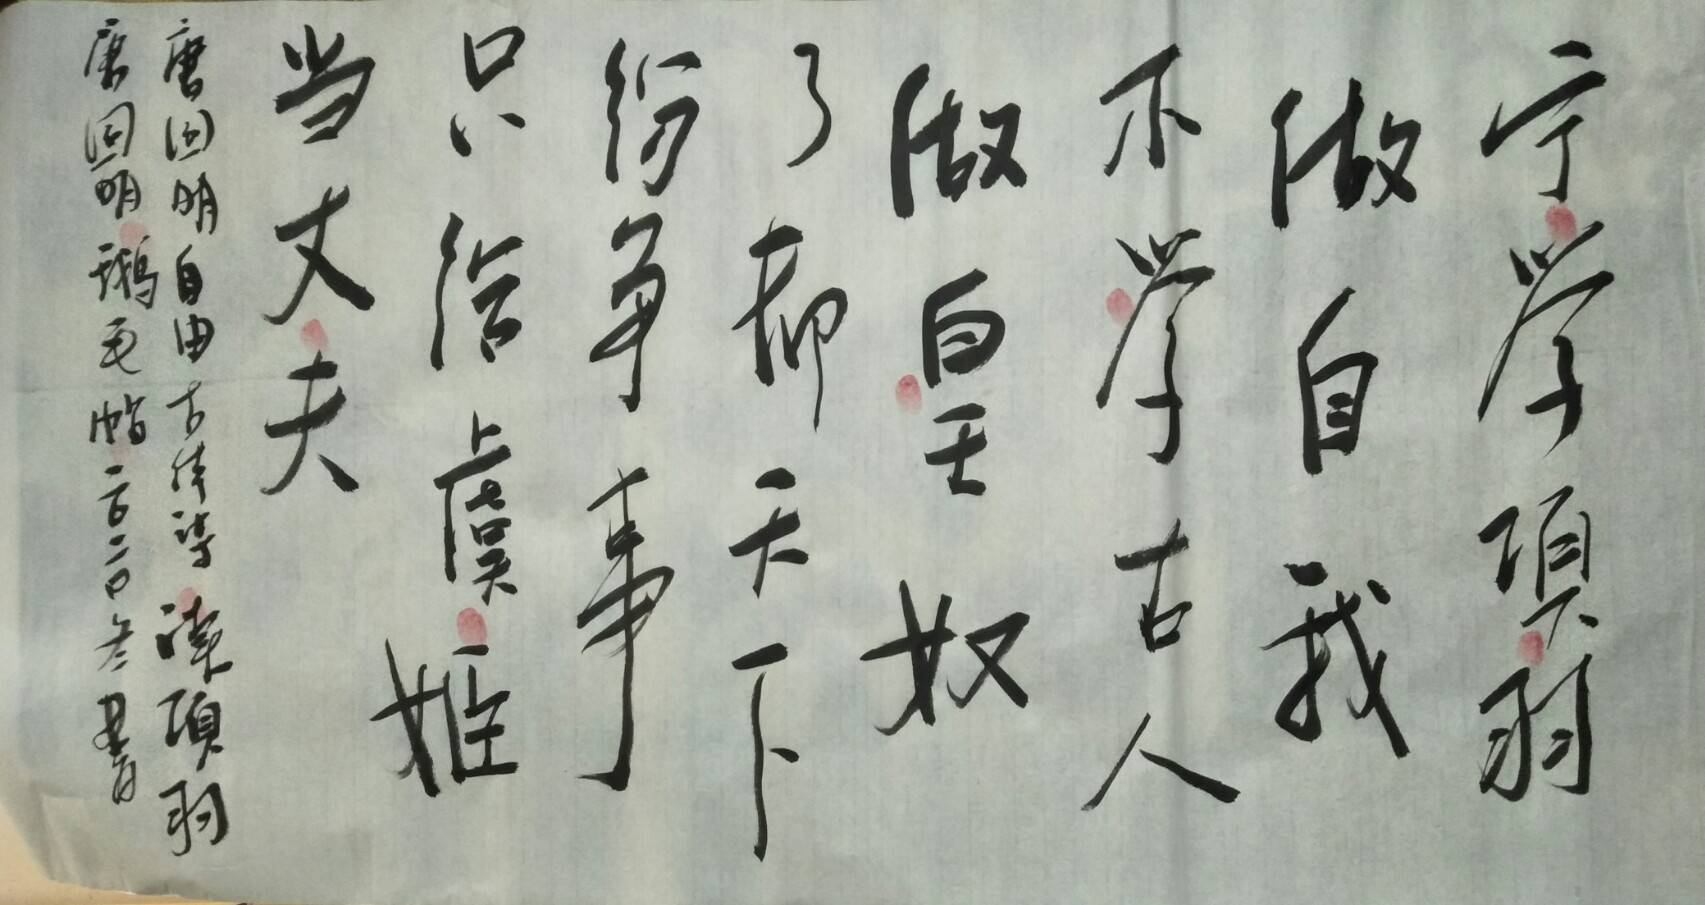 宁学項羽
做自我
不学古人
做皇王奴
了却天下
纷争事
只给虞姬
当丈夫
唐回明自由古体诗 读項羽
唐回明 鵝毛帖 二〇二〇冬書